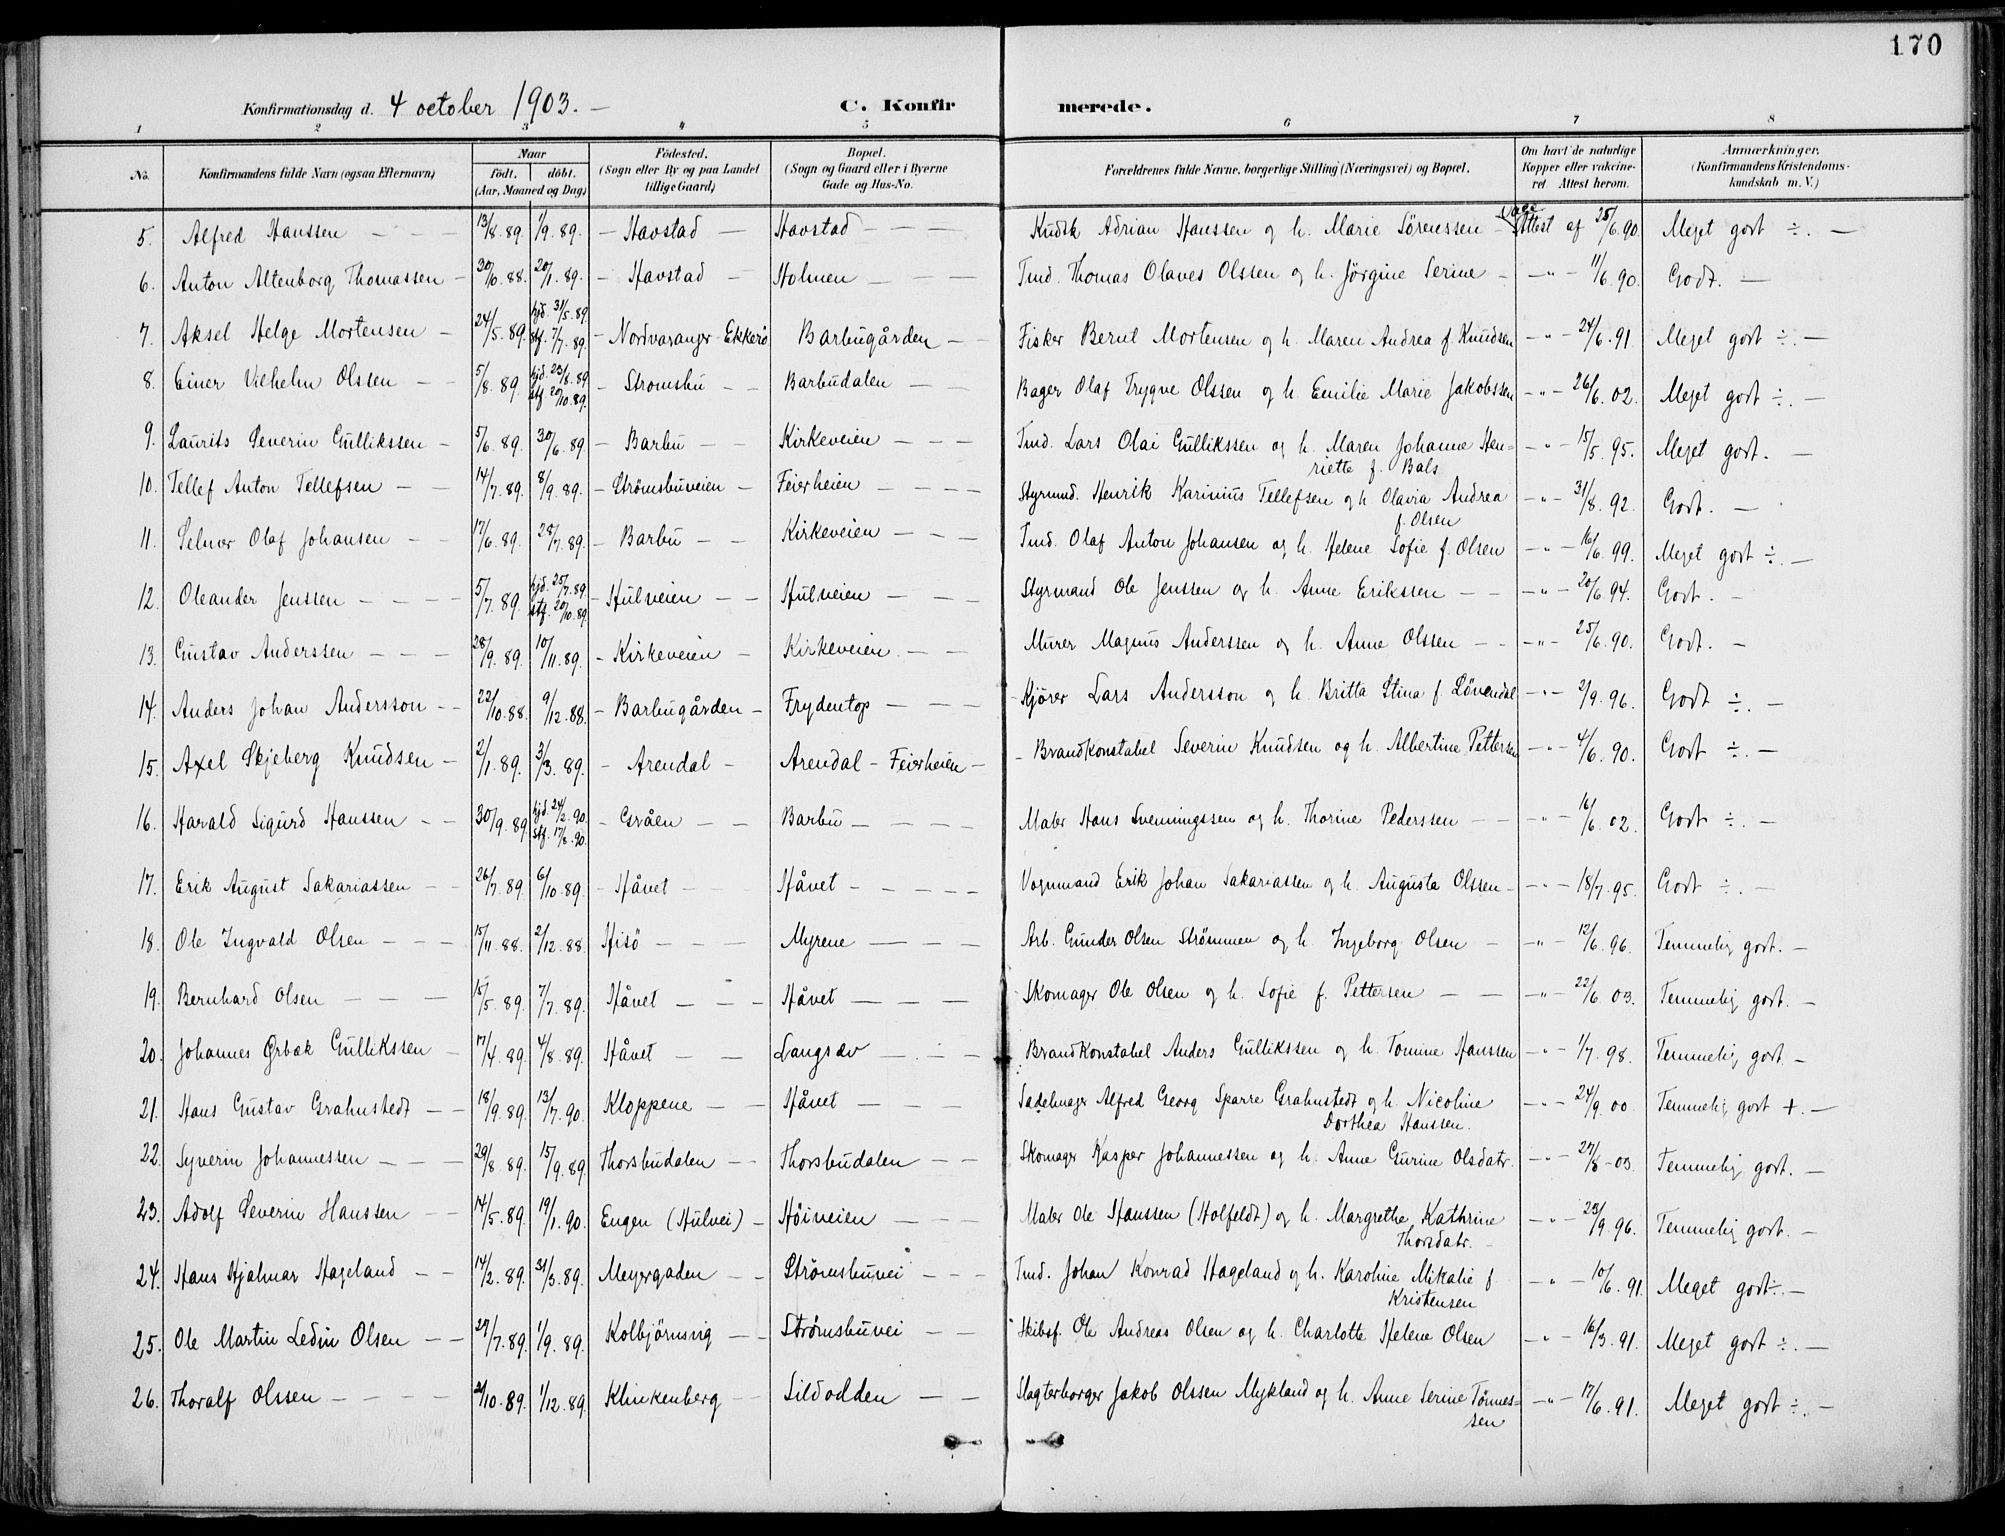 170
Konfirmationsdag d. 4 october 1903. — C. Konfirmerede.
1 2 3 4 5 6 7 8
No. Konfirmandens fulde Navn (ogsaa Efternavn) Naar født. døbt. (Aar, Maaned og Dag) Fødested. (Sogn eller By og paa Landet tillige Gaard) Bopæl. (Sogn og Gaard eller i Byerne Gade og Hus-No. Forældrenes fulde Navne, borgerlige Stilling (Næringsvei) og Bopæl. Om havt de naturlige Kopper eller vakcineret. Attest herom. Anmærkninger. (Konfirmandens Kristendomskundskab m. V.)
5. Alfred Hanssen — 13/8. 89. 1/9. 89. — Havstad — Havstad — Kudsk Adrian Hanssen og h. Marie Sörenssen — Attest af 25/6. 90. Meget godt ÷. —
6. Anton Altenborg Thomassen — 30/10. 88. 20/1. 89. — Havstad — Holmen — Tmd. Thomas Olaves Olssen og h. Jörgine Serine — — " — 11/6. 90. Godt. —
7. Aksel Helge Mortensen — 24/5. 89. hjd. 31/5. 89. stf. 7/7. 89. — Nordvaranger - Ekkerö Barbugården — Fisker Bernt Mortensen og h. Maren Andrea f. Knudsen — " — 24/6. 91. Meget godt ÷. —
8. Einer Vilhelm Olssen — 5/8. 89 hjd. 23/8. 89 stf. 20/10. 89. — Strømsbu — Barbudalen — Bager Olaf Trygve Olssen og h. Emilie Marie Jakobssen — " — 26/6. 02. Meget godt ÷. —
9. Laurits Severin Gullikssen — 5/6. 89. 30/6. 89. — Barbu — Kirkeveien — Tmd. Lars Olai Gullikssen og h. Maren Johanne Hen-
riette f. Bals — " — 15/5. 95. Meget godt. —
10. Tellef Anton Tellefsen — 14/7. 89. 8/9. 89. — Strömsbuveien — Feierheien — Styrmd. Henrik Karinius Tellefsen og h. Olavia Andrea
f. Olsen — " — 31/8. 92. Godt. —
11. Selmer Olaf Johansen — 17/6. 89. 28/7. 89. — Barbu — Kirkeveien — Tmd. Olaf Anton Johansen og h. Helene Sofie f. Olsen — " — 16/6. 99. Meget godt ÷. —
12. Oleander Jenssen — 5/7. 89 hjd. 25/7. 89. stf. 20/10. 89. — Hulveien — Hulveien — Styrmand Ole Jenssen og h. Anne Erikssen — — " — 20/6 94. Godt. —
13. Gustav Anderssen — 28/9. 89. 10/11. 89. — Kirkeveien — Kirkeveien. — Murer Magnus Anderssen og h. Anne Olssen — — " — 25/6. 90. Godt. —
14. Anders Johan Andersson — 22/10. 88. 9/12. 88. — Barbugården — Frydentop — Kjörer Lars Andersson og h. Britta Stina f. Lövendal — " — 2/9. 96. Godt ÷. —
15. Axel Skjeberg Knudsen — 2/1. 89. 3/3. 89. — Arendal — Arendal — Feierheien — Brandkonstabel Severin Knudsen og h. Albertine Pettersen — " — 4/6. 90. Godt ÷. —
16. Harald Sigurd Hanssen — 30/9. 89. hjd. 24/2. 90. stf. 17/8. 90. — Gråen — Barbu — Maler Hans Svenningssen og h. Thorine Pederssen — — " — 16/6. 02. Godt ÷. —
17. Erik August Sakariassen — 26/7. 89 6/10. 89. — Håvet — Håvet — Vognmand Erik Johan Sakariassen og h. Augusta Olssen — — " — 18/7. 95. Godt ÷. —
18. Ole Ingvald Olsen — 15/11. 88. 2/12. 88. Hisö — Myrene — Arb. Gunder Olsen Strömmen og h. Ingeborg Olsen — — " — 12/6. 96. Temmelig godt. —
19. Bernhard Olsen — 15/5. 89. 7/7. 89. Håvet — Håvet — Skomager Ole Olsen og h. Sofie f. Pettersen — — " — 22/6 03. Temmelig godt. —
20. Johannes Ørbæk Gullikssen — 17/4. 89. 4/8. 89. Håvet — Langsæv — Brandkonstabel Anders Gullikssen og h. Tomine Hanssen — " — 1/7. 98. Temmelig godt. —
21. Hans Gustav Grahnstedt — 18/9. 89. 13/7. 90. Kloppene — Håvet — Sadelmager Alfred Georg Sparre Grahnstedt og h. Nicoline
Dorthea Hanssen. — " — 24/9. 00. Temmelig godt +. —
22. Syverin Johannessen — 29/8. 89. 15/9. 89. Thorsbudalen — Thorsbudalen — Skomager Kasper Johannessen og h. Anne Gurine Olsdatr. — " — 27/8 - 03. Temmelig godt. —
23. Adolf Severin Hanssen — 14/5. 89. 19/1. 90. Engen (Hulvei) — Höiveien — Maler Ole Hanssen (Holfeldt) og h. Margrethe Kathrine
Thorsdatr. — — " — 23/9. 96. Temmelig godt. —
24. Hans Hjalmar Hageland — 14/2. 89. 31/3. 89. Meyergaden — Strømsbuvei — Tmd. Johan Konrad Hageland og h. Karoline Mikalie f.
Kristensen — " — 10/6. 91. Meget godt ÷. —
25. Ole Martin Ledin Olsen — 27/7. 89. 1/9. 89. Kolbjörnsvig — Strømsbuvei — Skibsf. Ole Andreas Olsen og h. Charlotte Helene Olsen — " — 16/3. 91. Meget godt ÷. —
26. Thoralf Olssen — /10. 89. 1/12. 89. Klinkenberg — Sildodden — Slagterborger Jakob Olssen Mykland og h. Anne Serine Tönnes-
sen — " — 17/6. 91. Meget godt ÷. —